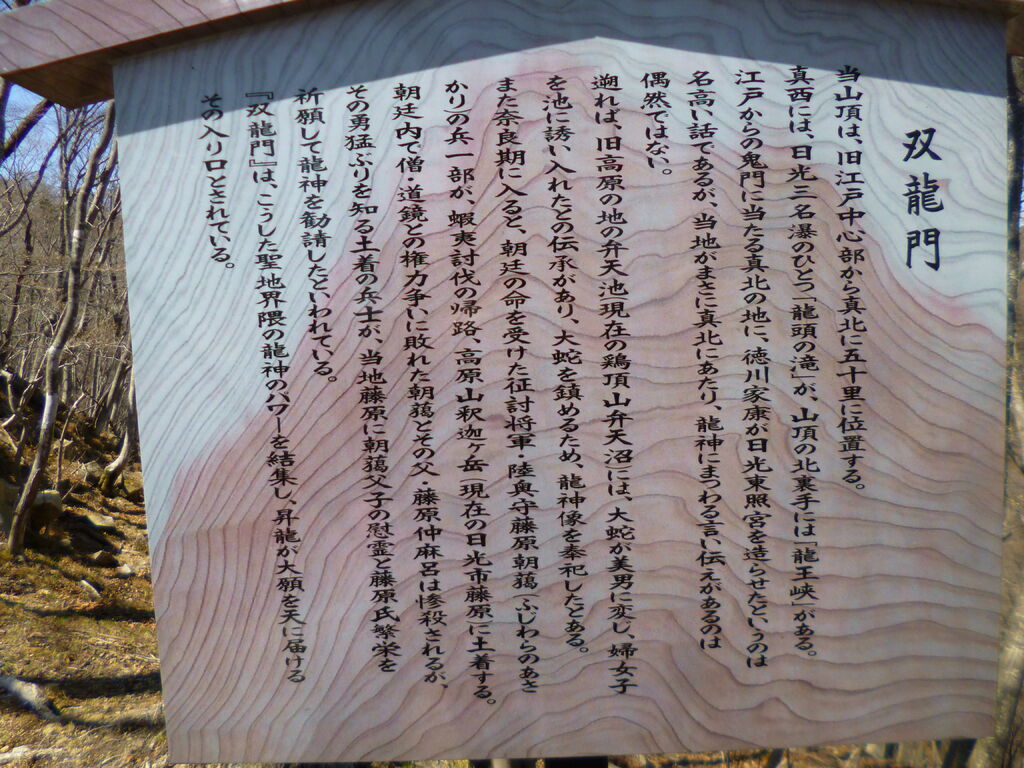 双龍門
当山頂は、旧江戸中心部から真北に五十里に位置する。
真西には、日光三名瀑のひとつ「龍頭の滝」が、山頂の北裏手には「龍王峡」がある。
江戸からの鬼門に当たる真北の地に、徳川家康が日光東照宮を造らせたというのは
名高い話であるが、当地がまさに真北にあたり、龍神にまつわる言い伝えがあるのは
偶然ではない。
遡れば、旧高原の地の弁天池(現在の鶏頂山弁天沼)には、大蛇が美男に変じ、婦女子
を池に誘い入れたとの伝承があり、大蛇を鎮めるため、龍神像を奉祀したとある。
また奈良期に入ると、朝廷の命を受けた征討将軍・陸奥守藤原朝獦(ふじわらのあさ
かり)の兵一部が、蝦夷討伐の帰路、高原山釈迦ヶ岳(現在の日光市藤原)に土着する。
朝廷内で僧・道鏡との権力争いに敗れた朝獦とその父・藤原仲麻呂は惨殺されるが、
その勇猛ぶりを知る土着の兵士が、当地藤原に朝獦父子の慰霊と藤原氏繁栄を
祈願して龍神を勧請したといわれている。
『双龍門』は、こうした聖地界隈の龍神のパワーを結集し、昇龍が大願を天に届ける
その入り口とされている。